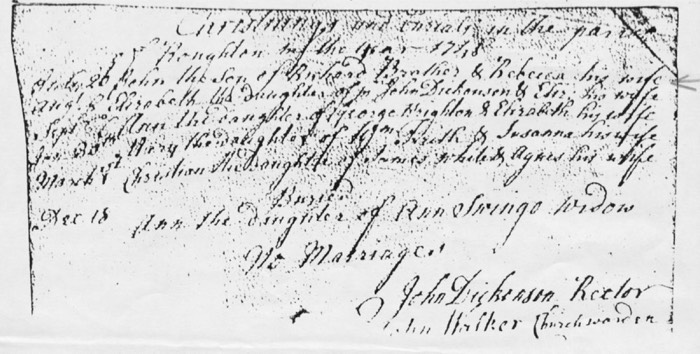 Christnings and burials in the parish
of Boughton in the year 1748
July 26 John the Son of Richard Brother & Rebecca his wife
Augt Elizabeth the Daughter of John Dickenson & Eliz: his wife
Septr Ann the daughter of George Wrighton & Elizabeth his wife
Jan 30th Mary the Daughter of Wm & Susanna his wife
March 1st Christian the Daughter of James White & Agnes his wife
Buried
Dec 18 Ann the daughter of Ann Swingo Widow
No Marriages
John Dickenson Rector
John Walker Churchwarden